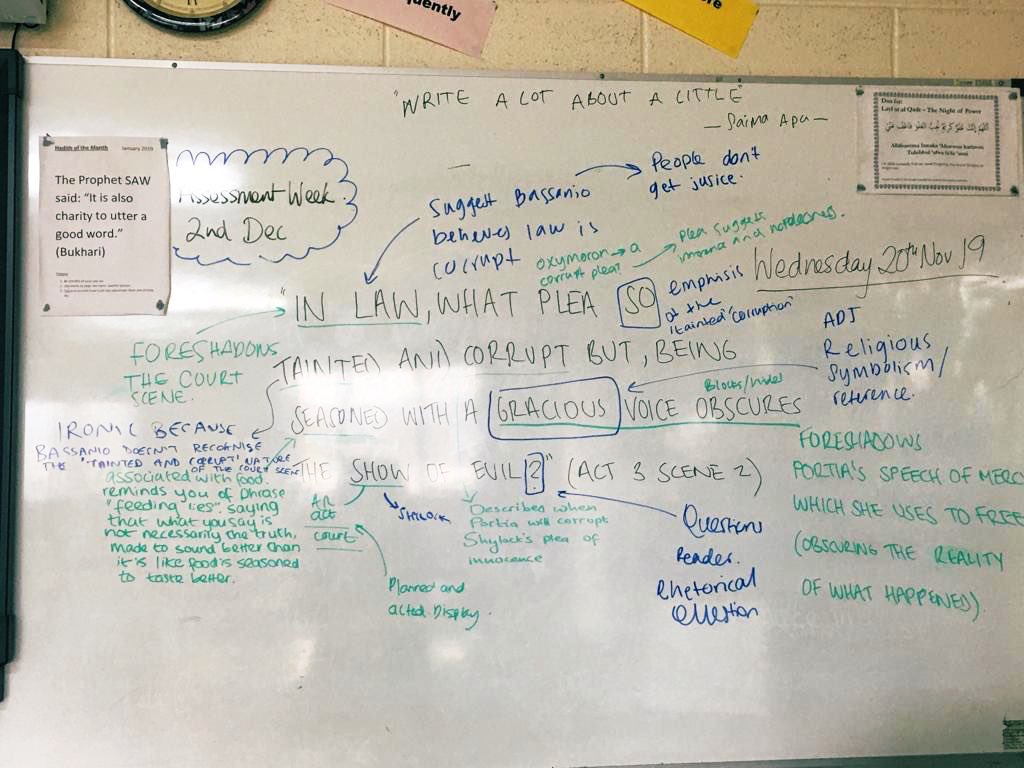 uently
ore
"WRITE A LOT ABOUT A LITTLE"
— Saima Apa —
Hadith of the Month January 2019
The Prophet SAW
said: "It is also
charity to utter a
good word."
(Bukhari)
Assessment Week
2nd Dec
Dua for:
Laylat al Qadr – The Night of Power
Suggest Bassanio
believes law is
corrupt
People don't
get jusice.
oxymoron → a
corrupt plea!
plea suggest
and hopelesness.
Wednesday 20th Nov 19
"IN LAW, WHAT PLEA SO
emphisis
of the
'tainted' 'corruption'
TAINTED AND CORRUPT BUT, BEING
SEASONED WITH A GRACIOUS VOICE OBSCURES
Blocks/hides
THE SHOW OF EVIL?" (ACT 3 SCENE 2)
FORESHADOWS
THE COURT
SCENE.
ADJ
Religious
symbolism/
reference.
IRONIC BECAUSE
BASSANIO DOESN'T RECOGNISE
THE "TAINTED AND CORRUPT" NATURE
OF THE COURT SCENE
associated with food.
reminds you of phrase
"feeding lies". saying
that what you say is
not necessarily the truth,
made to sound better than
it is like food is seasoned
to taste better.
AN
act
court
SHYLOCK
Planned and
acted. Display.
Describes when
Portia will corrupt
Shylock's plea of
innocence
Questions
Reader.
Rhetorical
Question
FORESHADOWS
PORTIA'S SPEECH OF MERC
WHICH SHE USES TO FREE
(OBSCURING THE REALITY
OF WHAT HAPPENED)